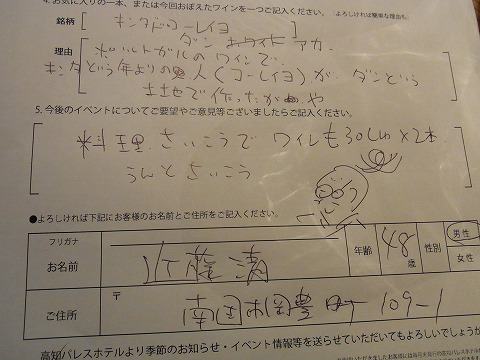 4. お気に入りの一本、または今回おぼえたワインを一つご記入ください。 よろしければ簡単な理由も
銘柄 キンタドコーレイヨ
ダン アカ
理由 ポルトガルのワインで
キンタという年よりの人(コーレイヨ)が ダンという
土地で作ったがや
5. 今後のイベントについてご要望やご意見等ございましたらご記入ください。
料理さいこうで ワインも ×2本
うんとさいこう
●よろしければ下記にお客様のお名前とご住所をご記入ください。
フリガナ
お名前 年齢 48歳 性別 男性 女性
ご住所 〒 南国市岡豊町 109-1
高知パレスホテルより季節のお知らせ・イベント情報等を送らせていただいてもよろしいでしょうか